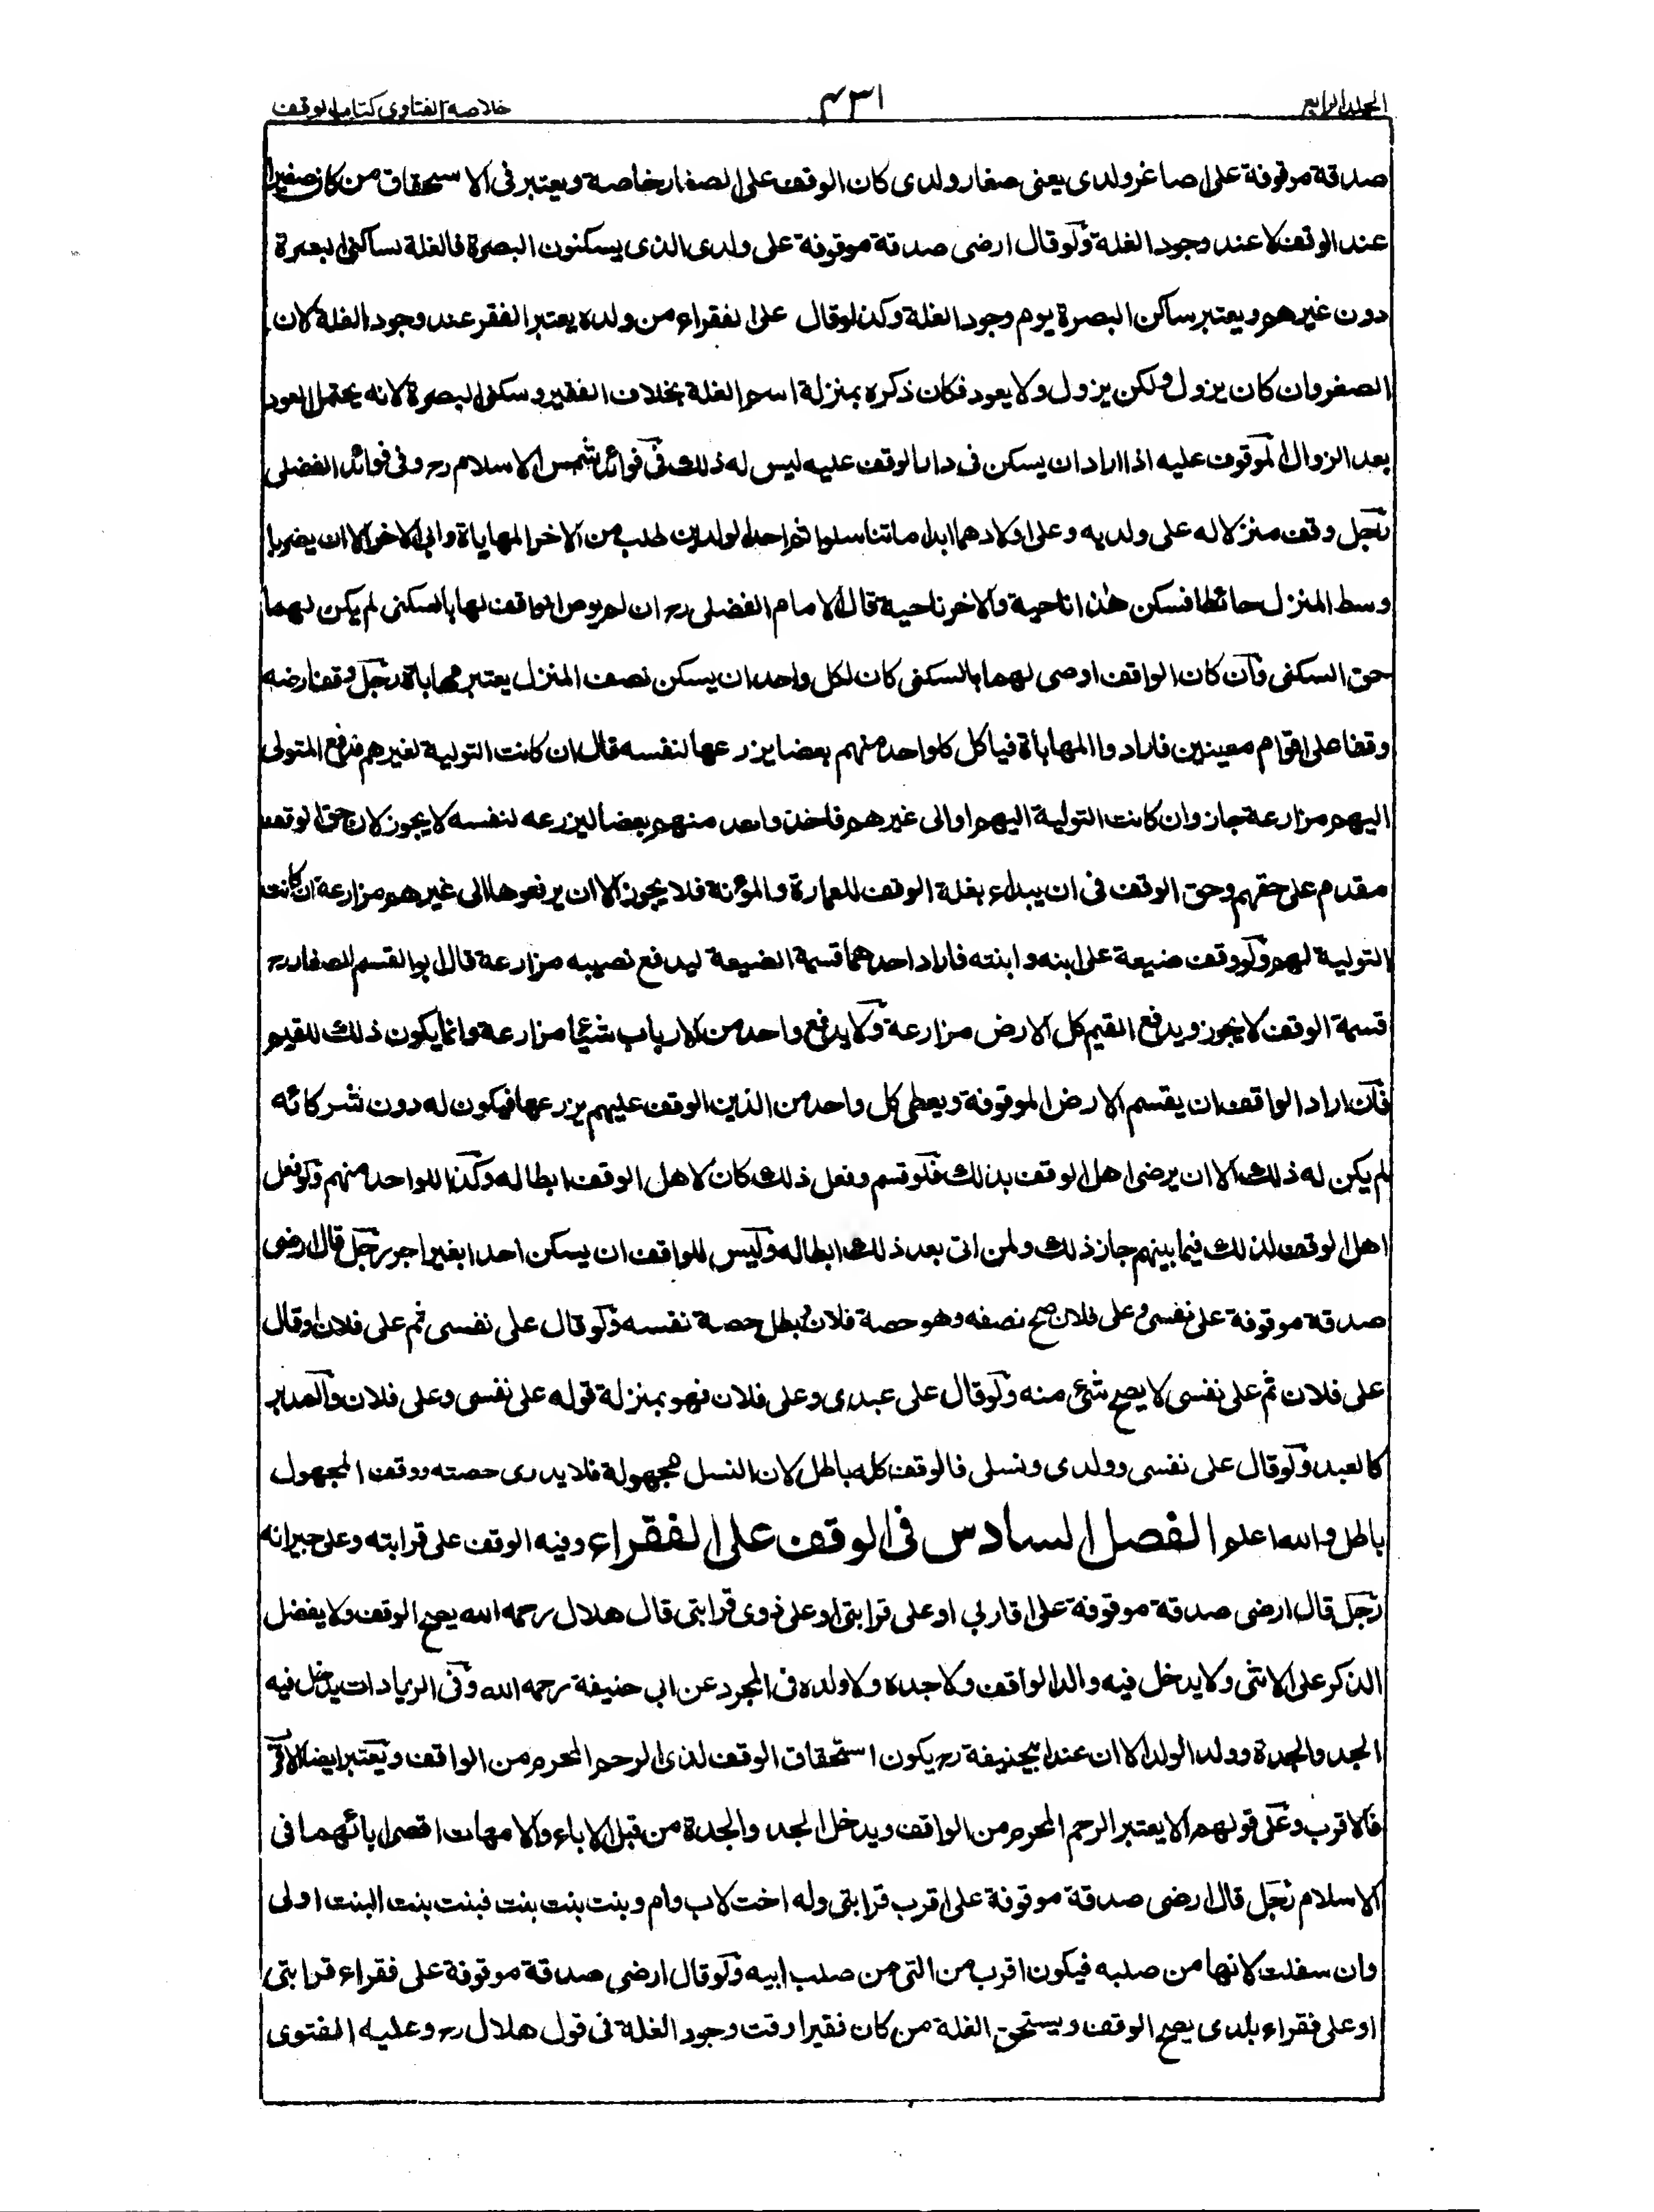 المجلد الرابع
۴۳۱
خلاصة الفتاوى كتاب الوقف
صدقة موقوفة على اصاغر ولدى يعنى صغار ولدى كان الوقف على الصغار خاصة ويعتبر فى الاستحقاق من كان صغيرا
عند الوقف لا عند وجود الغلة ولو قال ارضى صدقة موقوفة على ولدى الذى يسكنون البصرة فالغلة لساكنى البصرة
دون غيرهم ويعتبر ساكن البصرة يوم وجود الغلة وكذا لو قال على الفقراء من ولده يعتبر الفقر عند وجود الغلة لان
الصغر وان كان يزول ولكن يزول ولا يعود فكان ذكره بمنزلة اسم الغلة بخلاف الفقير وسكنى البصرة لانه يحتمل العود
بعد الزوال الموقوف عليه اذا اراد ان يسكن فى دار الوقف عليه ليس له ذلك فى فوائد شمس الاسلام رح وفى فوائد الفضلى
رجل وقف منزلا له على ولديه وعلى اولادهما ابدا ما تناسلوا ثم احد الولدين طلب من الاخر المهاياة وابى الاخر الا ان يضربا
وسط المنزل حائطا فسكن هذا ناحية والاخر ناحية قال الامام الفضلى رح ان لم يوص الواقف لهما بالسكنى لم يكن لهما
حق السكنى وان كان الواقف اوصى لهما بالسكنى كان لكل واحد ان يسكن نصف المنزل يعتبر مهاياة رجل وقف ارضه
وقفا على اقوام معينين فارادوا المهاياة فياكل كل واحد منهم بعضا يزرعها لنفسه قال ان كانت التولية لغيرهم فدفع المتولى
اليهم مزارعة جاز وان كانت التولية اليهم او الى غيرهم فاخذ واحد منهم بعضا ليزرعه لنفسه لا يجوز لان حق الوقف
مقدم على حقهم وحق الوقف فى ان يبداء بغلة الوقف للعمارة والمؤنة فلا يجوز الا ان يرفعوها الى غيرهم مزارعة ان كانت
التولية لهم ولو وقف ضيعة على ابنه وابنته فاراد احدهما قسمة الضيعة ليدفع نصيبه مزارعة قال ابو القسم الصفار رح
قسمة الوقف لا يجوز ويدفع القيم كل الارض مزارعة ولا يدفع واحد من الارباب شيئا مزارعة وانما يكون ذلك للقيم
فان اراد الواقف ان يقسم الارض الموقوفة ويعطى كل واحد من الذين الوقف عليهم يزرعها فيكون له دون شركائه
لم يكن له ذلك الا ان يرضى اهل الوقف بذلك فلو قسم وفعل ذلك كان لاهل الوقف ابطاله وكذا للواحد منهم ولو فعل
اهل الوقف لذلك فيما بينهم جاز ذلك ولمن اتى بعد ذلك ابطاله وليس للواقف ان يسكن احدا بغير اجر رجل قال ارضى
صدقة موقوفة على نفسى وعلى فلان صح نصفه وهو حصة فلان وبطل حصة نفسه ولو قال على نفسى ثم على فلان او قال
على فلان ثم على نفسى لا يصح شئ منه ولو قال على عبدى وعلى فلان فهو بمنزلة قوله على نفسى وعلى فلان والمدبر
كالعبد ولو قال على نفسى وولدى ونسلى فالوقف كله باطل لان النسل مجهولة فلا يدرى حصته ووقف المجهول
باطل والله اعلم الفصل السادس فى الوقف على الفقراء وفيه الوقف على قرابته وعلى جيرانه
رجل قال ارضى صدقة موقوفة على اقاربى او على قرابتى او على ذوى قرابتى قال هلال رحمه الله يصح الوقف ولا يفضل
الذكر على الانثى ولا يدخل فيه والد الواقف ولا جده ولا ولده فى المجرد عن ابى حنيفة رحمه الله وفى الزيادات يدخل فيه
الجد والجدة وولد الولد الا ان عند ابيحنيفة رح يكون استحقاق الوقف لذى الرحم المحرم من الواقف ويعتبر ايضا الاقرب
فالاقرب وعلى قولهم لا يعتبر الرحم المحرم من الواقف ويدخل الجد والجدة من قبل الاباء والامهات اقصى ابائهما فى
الاسلام رجل قال ارضى صدقة موقوفة على اقرب قرابتى وله اخت لاب وام وبنت بنت بنت فبنت بنت البنت اولى
وان سفلت لانها من صلبه فيكون اقرب من التى من صلب ابيه ولو قال ارضى صدقة موقوفة على فقراء قرابتى
او على فقراء بلدى يصح الوقف ويستحق الغلة من كان فقيرا وقت وجود الغلة فى قول هلال رح وعليه الفتوى